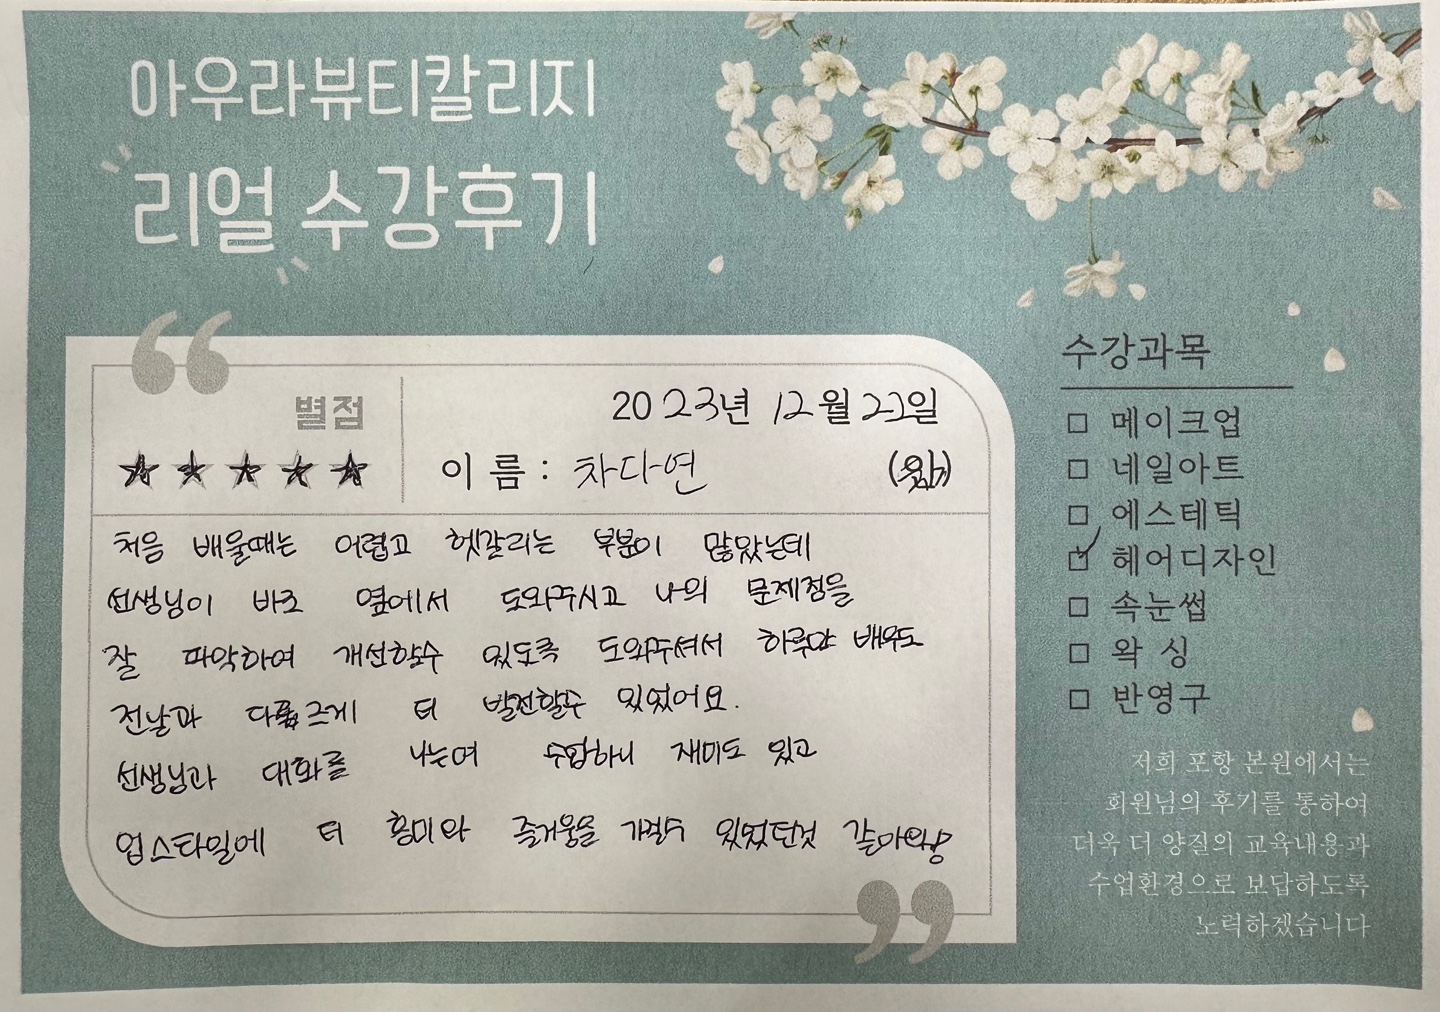 아우라뷰티칼리지
리얼 수강후기
별점
2023년 12월 22일
이 름 : 차다연
처음 배울때는 어렵고 헷갈리는 부분이 많았는데
선생님이 바로 옆에서 도와주시고 나의 문제점을
잘 파악하여 개선할수 있도록 도와주셔서 하루만 배워도
전날과 다르게 더 발전할수 있었어요.
선생님과 대화를 나누며 수업하니 재미도 있고
업스타일에 더 흥미와 즐거움을 가질수 있었던것 같아요
수강과목
□ 메이크업
□ 네일아트
□ 에스테틱
☑ 헤어디자인
□ 속눈썹
□ 왁 싱
□ 반영구
저희 포항 본원에서는
회원님의 후기를 통하여
더욱 더 양질의 교육내용과
수업환경으로 보답하도록
노력하겠습니다